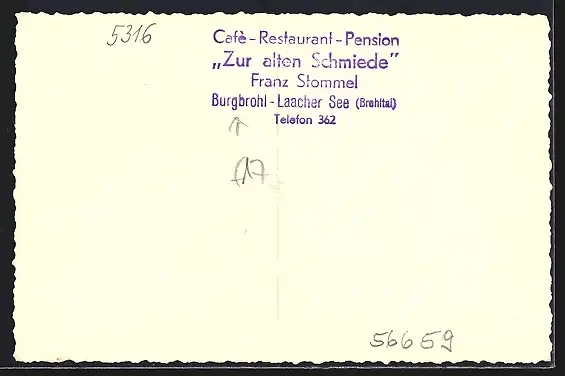 5316
Cafè-Restaurant-Pension
„Zur alten Schmiede"
Franz Stommel
Burgbrohl-Laacher See (Brohltal)
Telefon 362
17
56659